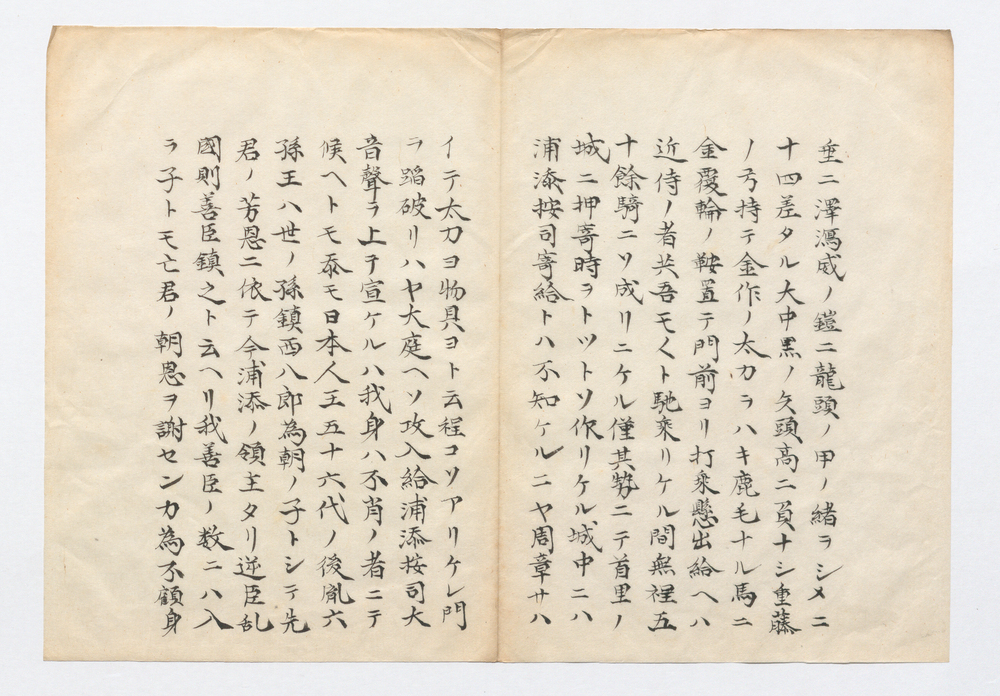 垂ニ澤瀉威ノ鎧ニ龍頭ノ甲ノ緒ヲシメニ
十四差タル大中黒ノ矢頭高ニ負ナシ重藤
ノ弓持テ金作ノ太刀ヲハキ鹿毛ナル馬ニ
金覆輪ノ鞍置テ門前ヨリ打乘懸出給ヘハ
近侍ノ者共吾モ〱ト馳乘リケル間無程五
十餘騎ニソ成リニケル僅其勢ニテ首里ノ
城ニ押寄時ヲトツトソ作リケル城中ニハ
浦添按司寄給トハ不知ケルニヤ周章サハ
イテ太刀ヨ物具ヨト云程コソアリケレ門
ヲ蹈破リハヤ大庭ヘソ攻入給浦添按司大
音聲ヲ上テ宣ケルハ我身ハ不肖ノ者ニテ
候ヘトモ忝モ日本人王五十六代ノ後胤六
孫王八世ノ孫鎮西八郎為朝ノ子トシテ先
君ノ芳恩ニ依テ今浦添ノ領主タリ逆臣乱
國則善臣鎮之ト云ヘリ我善臣ノ数ニハ入
ラ子トモ亡君ノ朝恩ヲ謝センカ為不顧身